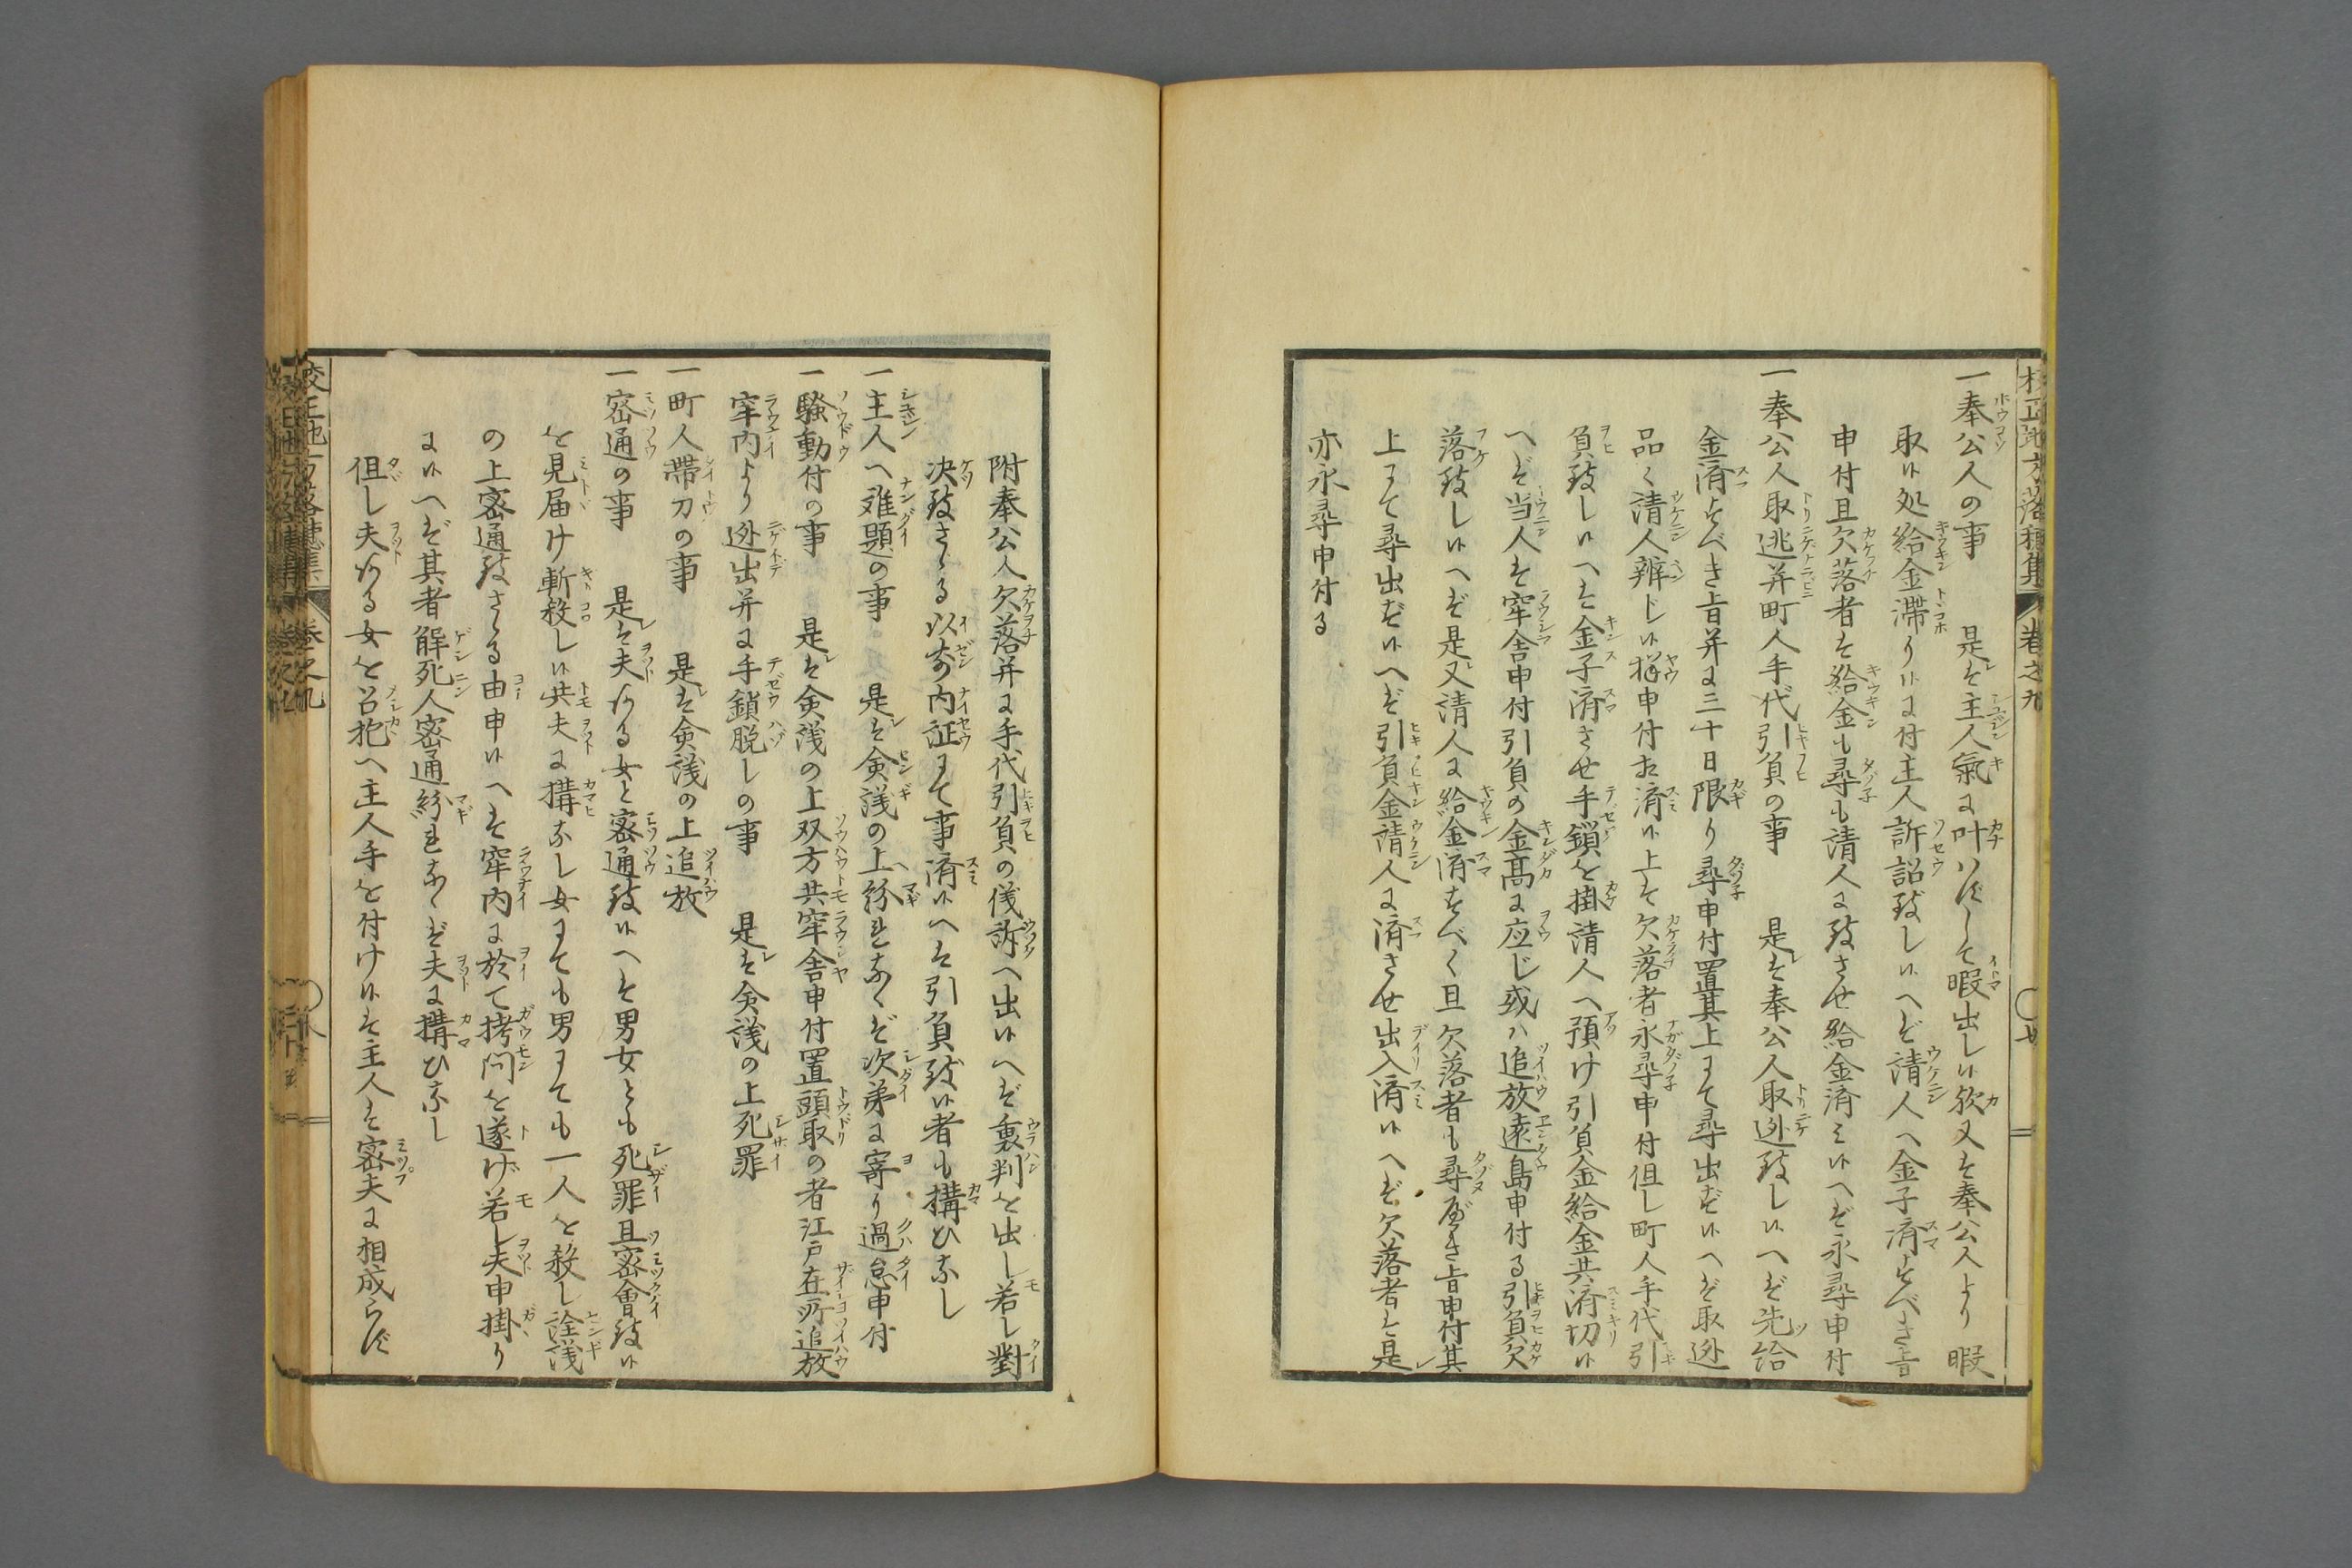 一奉公人の事　是ハ主人氣に叶ハずして暇出し候歟又ハ奉公人より暇
取候処給金滞り候に付主人訴詔致し候へバ請人へ金子済すべき旨
申付且欠落者ハ給金も尋も請人に致させ給金済ミ候へバ永尋申付
一奉公人取逃并町人手代引負の事　是ハ奉公人取迯致し候へバ先給
金済すべき旨并に三十日限り尋申付置其上にて尋出ださず候へバ取迯
品々請人辨じ候様申付相済候上ハ欠落者永尋申付但し町人手代引
負致し候へハ金子済させ手鎖を掛請人へ預け引負金給金共済切候
へバ当人ハ牢舎申付引負の金高に応じ或ハ追放遠島申付る引負欠
落致し候へバ是又請人に給金済すべく且欠落者も尋ぬべき旨申付其
上にて尋出ださず候へバ引負金請人に済させ出入済候へバ欠落者ハ是
亦永尋申付る
附奉公人欠落并に手代引負の儀訴へ出候へバ裏判を出し若し對
決致さゝる以前内証にて事済候へハ引負致候者も構ひなし
一主人へ難題の事　是ハ僉議の上紛れなくバ次第に寄り過怠申付
一騒動付の事　是ハ僉議の上双方共牢舎申付置頭取の者江戸在所追放
牢内より迯出并に手鎖脱しの事　是ハ僉議の上死罪
一町人帯刀の事　是ハ僉議の上追放
一密通の事　是ハ夫ある女と密通致候へハ男女とも死罪且密會致候
を見届け斬殺し候共夫に構なし女にても男にても一人を殺し詮議
の上密通致さゝる由申候へハ牢内に於て拷問を遂げ若し夫申掛り
に候へバ其者解死人密通紛れなくバ夫に構ひなし
但し夫ある女を召抱へ主人手を付け候ハ主人ハ密夫に相成らず
校正地方落穂集　巻之九